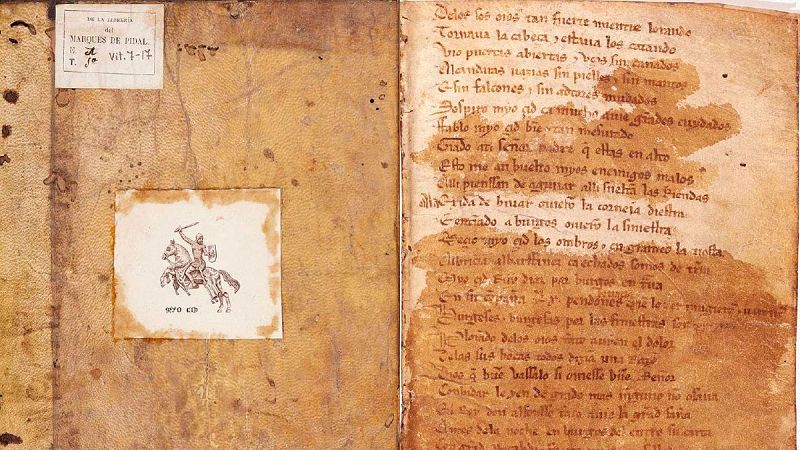 DE LA LIBRERÍA
del
MARQUÉS DE PIDAL.
E.
T. Vit. 7-17
MYO CID
Delos sos oios tan fuerte mientre lorando
Tornaua la cabeça y estaua los catando
Vio puertas abiertas y vços sin cañados
Alcandaras uazias sin pielles y sin mantos
E sin falcones y sin adtores mudados
Sospiro myo çid ca mucho auie grãdes cuydados
Fablo myo çid bie y tan mesurado
Grado ati señor padre q̃ estas en alto
Esto me an buelto myos enemigos malos
Alli pienssan de aguijar alli sueltã las riendas
la exida de biuar ouierõ la corneia diestra
Entrãdo a burgos ouierõ la siniestra
Meçio myo çid los ombros y en grameo la tiesta
Albricia albarffanez ca echados somos de tierra
Myo çid Ruy diaz por burgos en
En su compaña Lx pendones
Burgeses y burgesas por las finiestras
Plorando delos oios tãto auyen el dolor
Delas sus bocas todos dizian una Razõ
Dios q̃ buẽ vassalo si ouiesse buẽ Señor
Conbidar le yen de grado mas ninguno no osaua
El Rey don alfonsso tãto auie la grãd saña
Antes dela noche en burgos del entro su carta